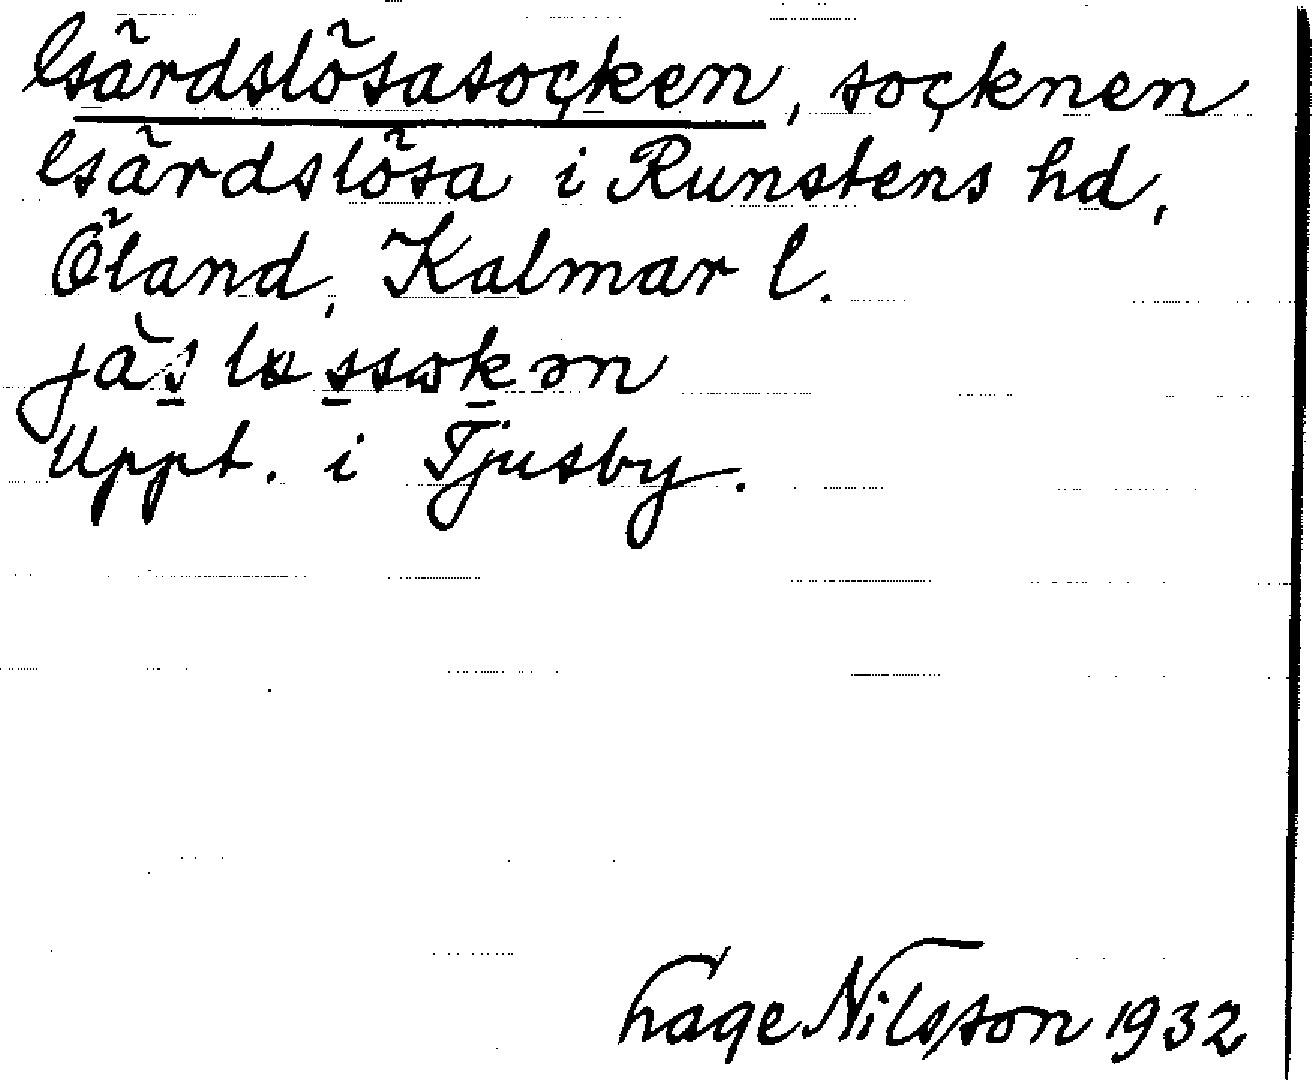 Gärdslösasocken, socknen
Gärdslösa i Runstens hd,
Öland, Kalmar l.
Uppt. i Tjusby.
Nilsson 1932